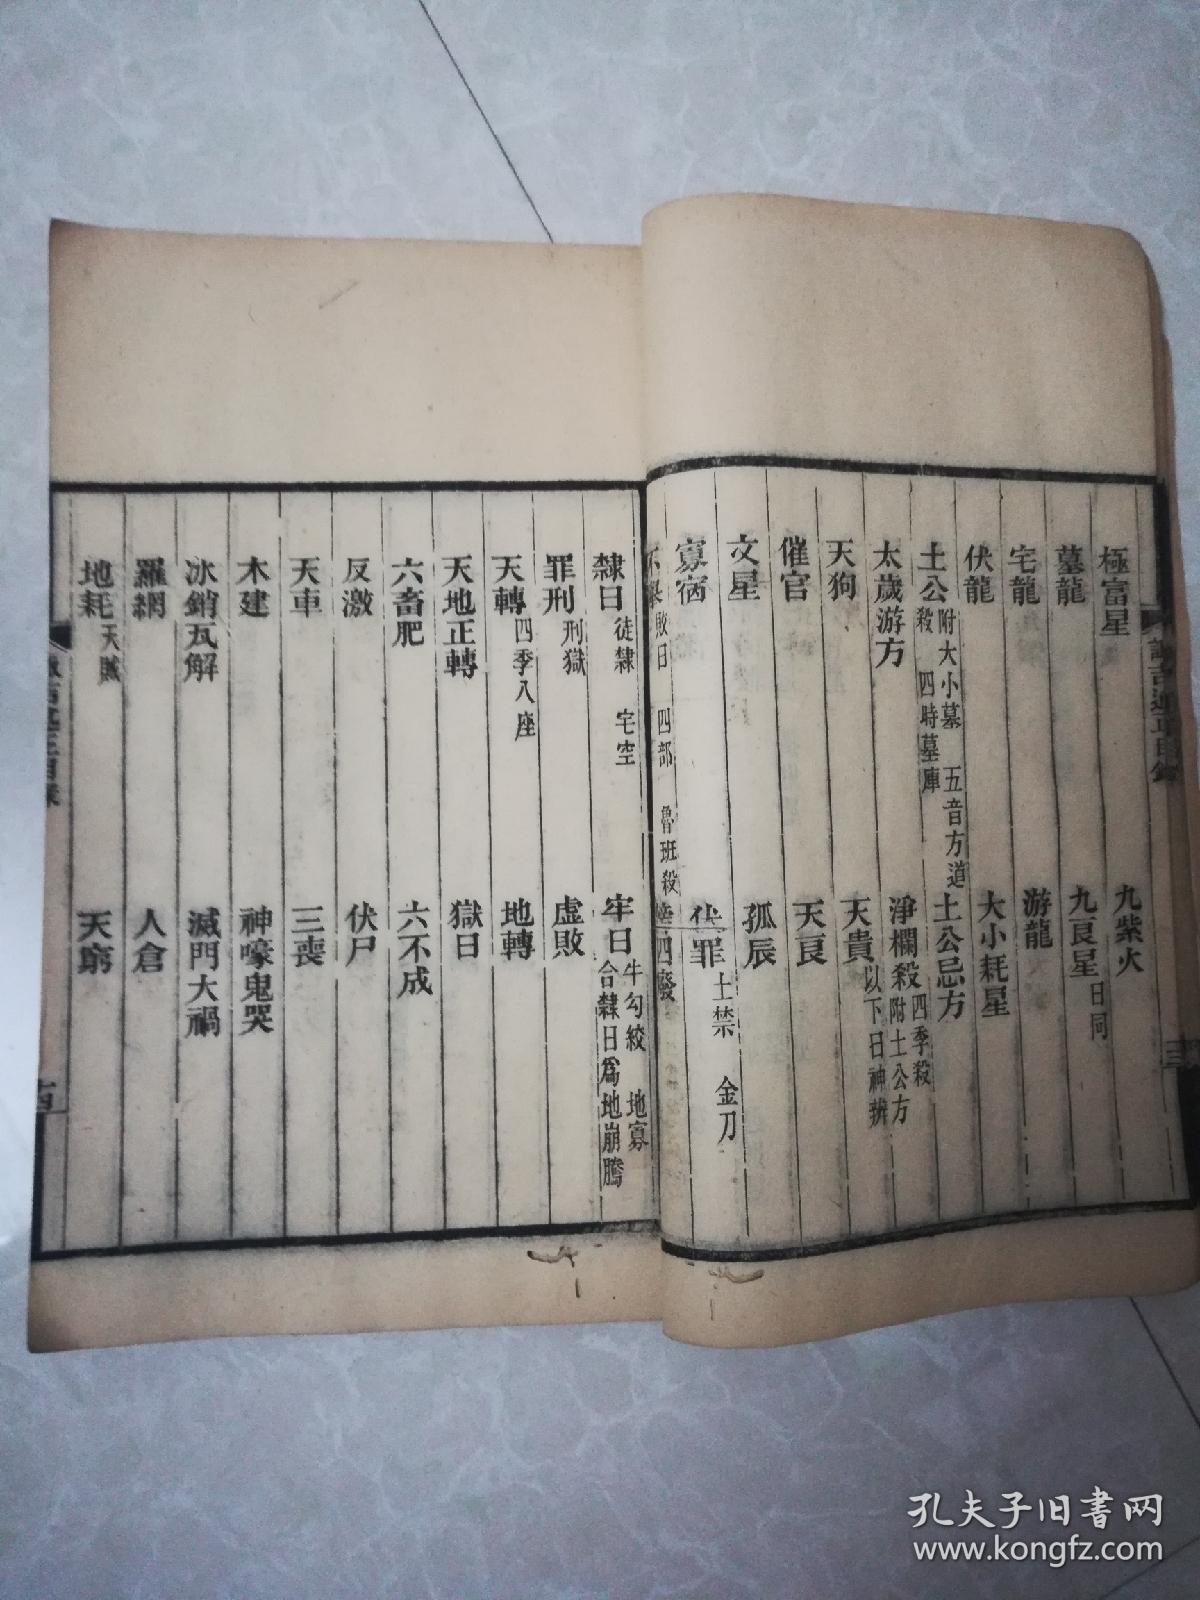 極富星 九紫火
墓龍 九良星日同
宅龍 游龍
伏龍 大小耗星
土公附大小墓 五音方道殺 四時墓庫 土公忌方
太歲游方 淨欄殺四季殺附土公方
天狗 天貴以下日神辨
催官 天良
文星 孤辰
寡宿 伏罪土禁 金刀
不舉敗日 四部 魯班殺 四廢
隸日徒隸 宅空 牢日牛勾絞 地寡合隸日為地崩騰
罪刑刑獄 虛敗
天轉四季入座 地轉
天地正轉 獄日
六畜肥 六不成
反激 伏尸
天車 三喪
木建 神嚎鬼哭
冰銷瓦解 滅門大禍
羅網 人倉
地耗天賊 天窮
孔夫子旧書网
www.kongfz.com